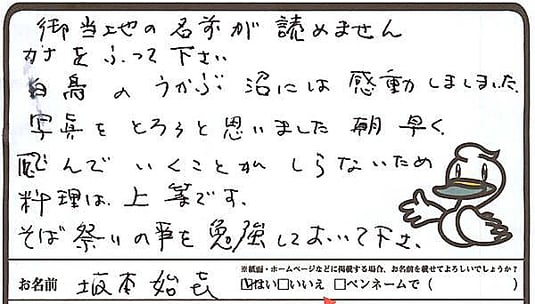 御当地の名前が読めません
カナをふって下さい
白鳥のうかぶ沼には感動しましました。
写真をとろうと思いました朝早く
飛んでいくことがしらないため
料理は上等です。
そば祭りの事を勉強しておいて下さい
※紙面・ホームページなどに掲載する場合、お名前を載せてよろしいでしょうか?
お名前 坂本始 ☑はい□いいえ□ペンネームで( )